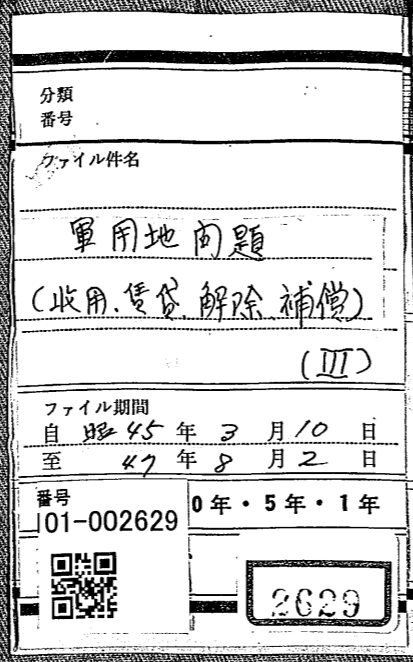 分類
番号
ファイル件名
軍用地問題
(收用、賃貸、解除、補償)
(III)
ファイル期間
自 昭45年3月10日
至 47年8月2日
0年・5年・1年
番号
01-002629
2629